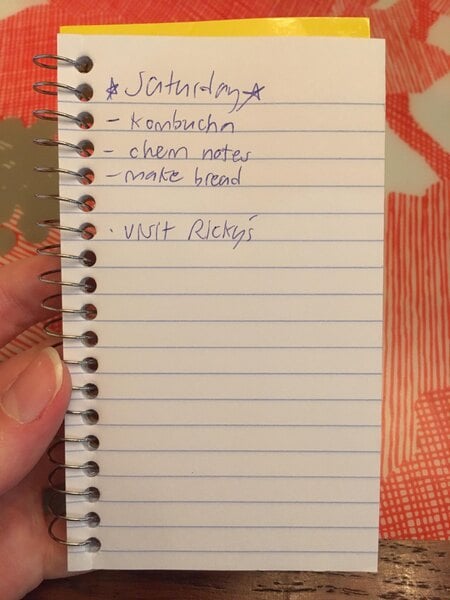 ☆ Saturday ☆
- Kombucha
- chem notes
- make bread
· visit Ricky's